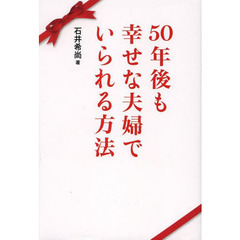 50年後も
幸せな夫婦で
いられる方法
石井希尚 著